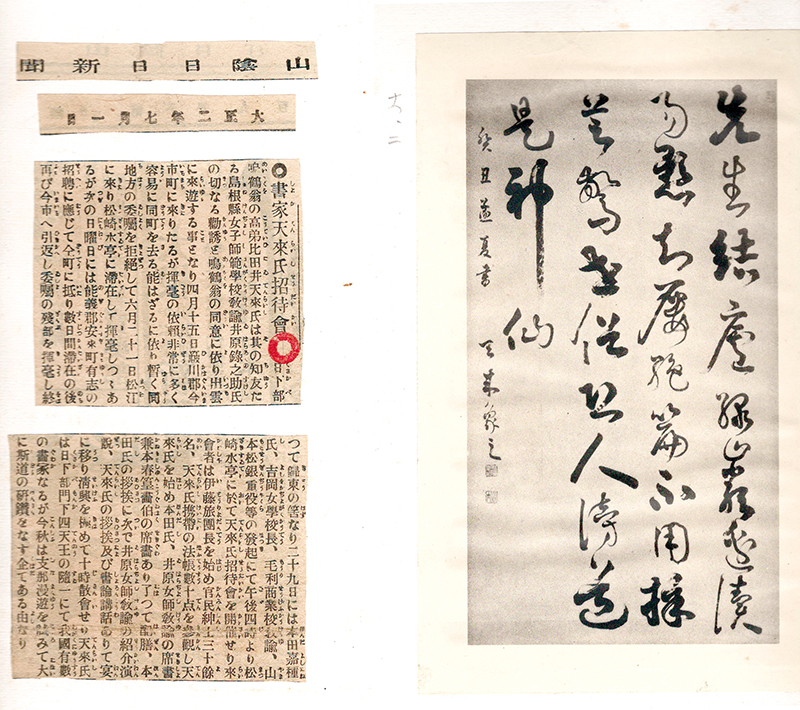 山陰日日新聞
大正二年七月一日
◎書家天來氏招待會 日下部
鳴鶴翁の高弟比田井天來氏は其の知友た
る島根縣女子師範學校敎諭井原錄之助氏
の切なる勸誘と鳴鶴翁の同意に依り出雲
に來遊する事となり四月十五日簸川郡今
市町に來りたるが揮毫の依賴非常に多く
容易に同町を去る能はざるに依り暫く同
地方の委囑を拒絶して六月二十一日松江
に來り松崎水亭に滯在して揮毫しつゝあ
るが次の日曜日には能義郡安來町有志の
招聘に應じて今町に抵り數日間滯在の後
再び今市へ引返し委囑の殘部を揮毫し終
つて歸東の筈なり二十九日には本田嘉種
氏、吉岡女學校長、毛利商業校敎諭、山
本松銀重役等の發起にて午後四時より松
崎水亭に於て天來氏招待會を開催せり來
會者は伊藤旅團長を始め官民紳士三十餘
名、天來氏携帶の法帳數十点を參觀し天
來氏を始め本田氏、井原女師敎諭の席書
兼本春篁畵伯の席畵あり了つて 膳、本
田氏の挨拶に次で井原女師敎諭の紹介演
說、天來氏の挨拶及び書論講話ありて宴
に移り淸興を極めて十時散會せり天來氏
は日下部門下四天王の隨一にて我國有數
の書家なるが今秋は支那漫遊を試みて大
に斯道の硏鑽をなす企てある由なり
大、二
先生結廬綠嵓邊讀
易懸知屢絶篇不用採
芝驚世俗恐人謗道
是神仙
癸丑孟夏書 天來象之